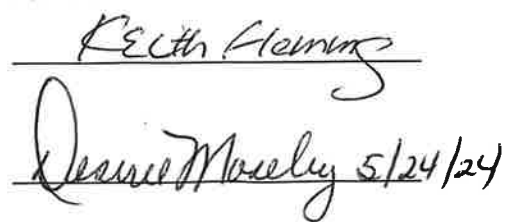 Keith Fleming
Desiree Moseley 5/24/24